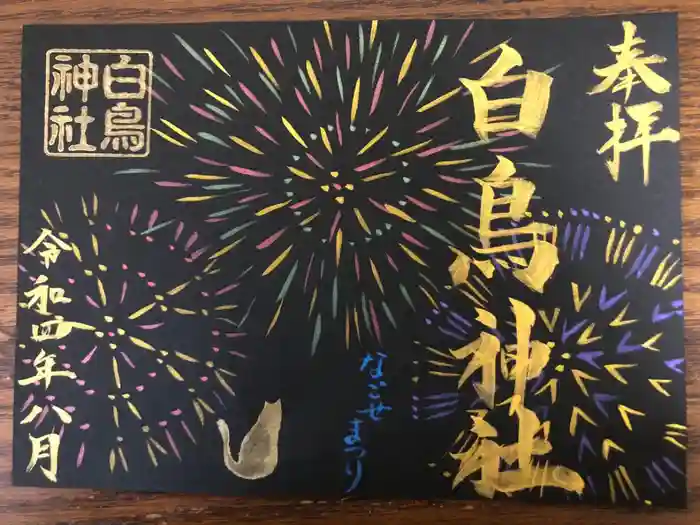 奉拝
白鳥神社
なごせまつり
白鳥
神社
令和四年八月